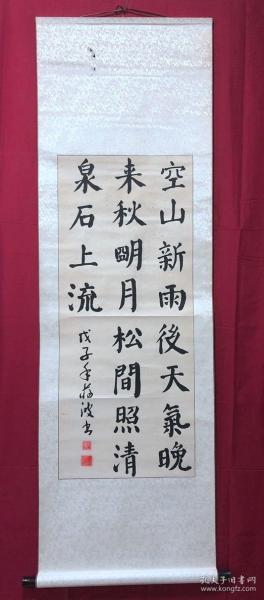 空山新雨後天氣晚
来秋明月松間照清
泉石上流
戊子年蒋波书
孔夫子旧书网
www.kongfz.com